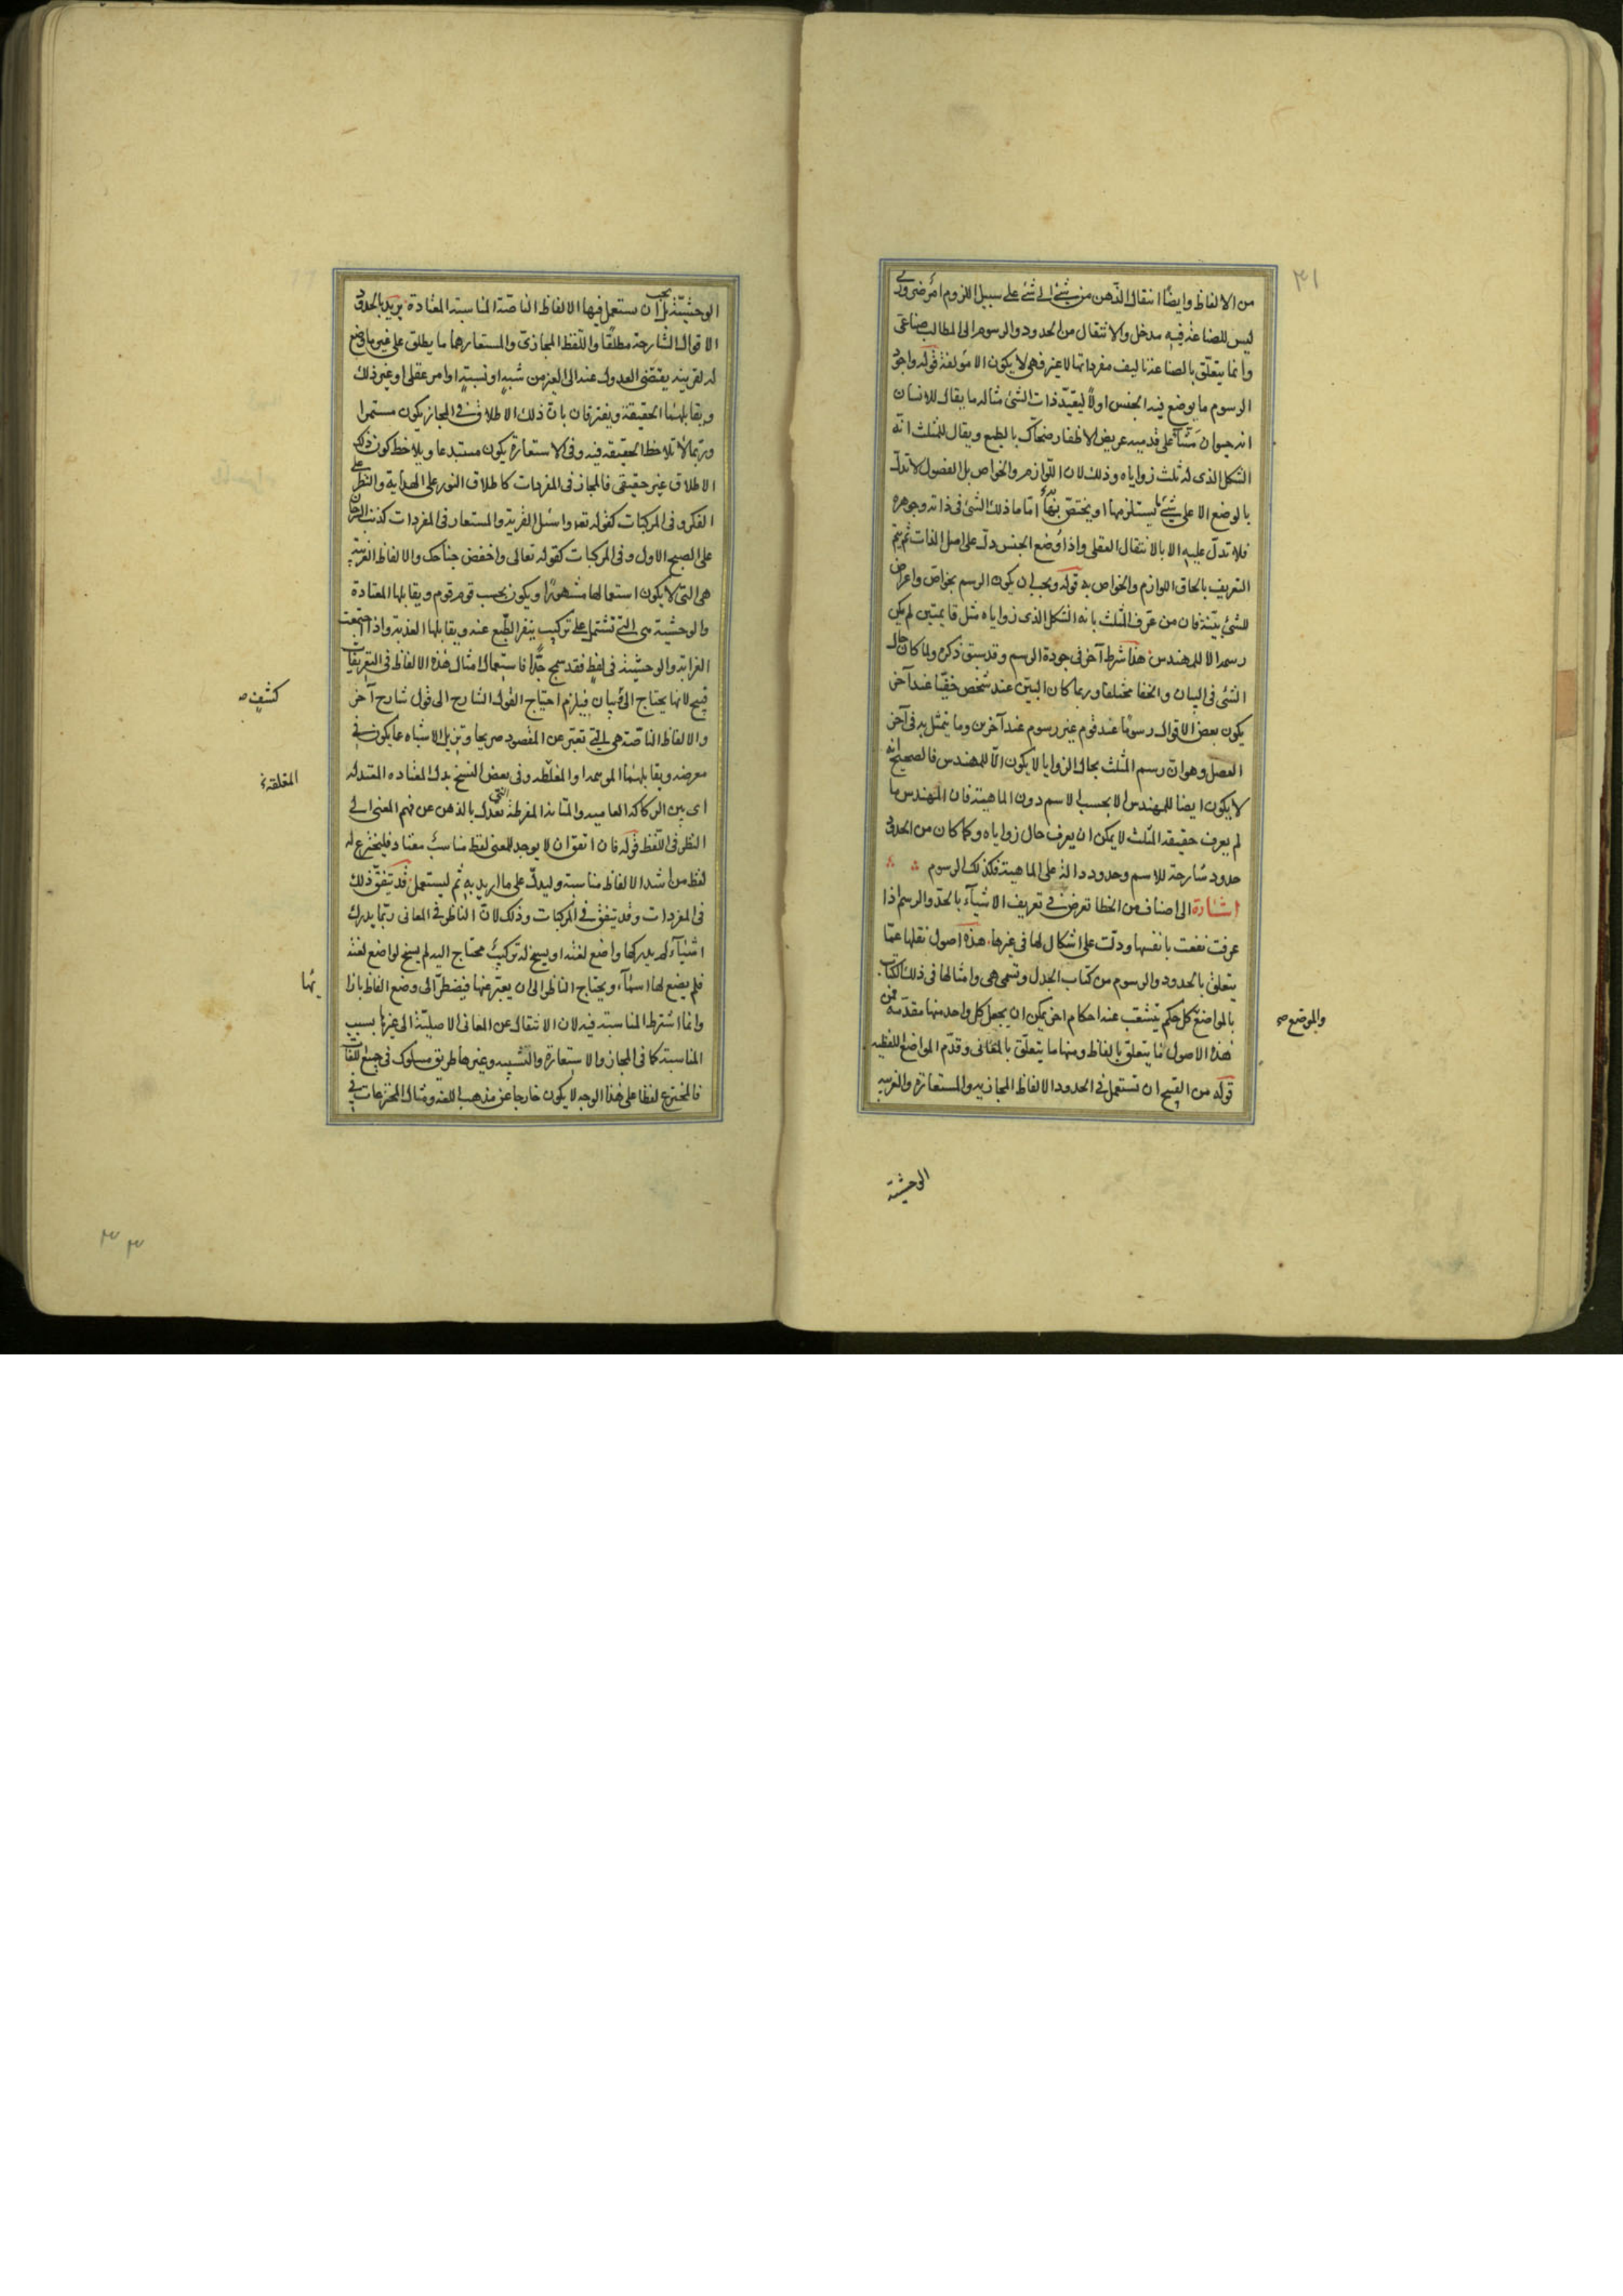 ٣١
من الالفاظ وايضًا انتقال الذهن من شئ الى شئ على سبيل اللزوم امر ضرورى
ليس للصناعة فيه مدخل والانتقال من الحدود والرسوم الى المطالب صناعى
وانما يتعلق بالصناعة تاليف مفرداتها لاغير فهى لا يكون الا مؤلفة قوله واجود
الرسوم ما يوضع فيه الجنس اولًا ليقيد ذات الشئ مثاله ما يقال للانسان
انه حيوان مشاء على قدميه عريض الاظفار ضحاك بالطبع ويقال للمثلث انه
الشكل الذى له ثلث زواياه وذلك لان اللوازم والخواص بل الفصول لا تدل
بالوضع الا على شئ ما يستلزمها او يختص بها اما ما ذلك الشئ فى ذاته وجوهره
فلا تدل عليه الا بالانتقال العقلى واذا وضع الجنس دل على اصل الذات ثم يتم
التعريف بالحاق اللوازم والخواص به قوله ويجب ان يكون الرسم بخواص واعراض
للشئ بينة فان من عرف المثلث بانه الشكل الذى زواياه مثل قائمتين لم يكن
رسمه الا للمهندس هذا شرط آخر فى جودة الرسم وقد سبق ذكره ولما كان حال
الشئ فى البيان والخفا مختلفا وربما كان البين عند شخص خفيا عند آخر
يكون بعض الاقوال رسومًا عند قوم غير رسوم عند آخرين وما يتمثل به فى آخر
الفصل وهو ان رسم المثلث بحال الزوايا لا يكون الا للمهندس فالصحيح انه
لا يكون ايضا للمهندس الا بحسب الاسم دون الماهية فان المهندس ما
لم يعرف حقيقه المثلث لا يمكن ان يعرف حال زواياه وكما كان من الحدود
حدود شارحة للاسم وحدود دالة على الماهية فكذلك الرسوم
اشارة الى اصناف من الخطا تعرض فى تعريف الاشيآء بالحد والرسم اذا
عرفت نفعت بانفسها ودلت على اشكال لها فى غيرها هذه اصول نقلها مما
يتعلق بالحدود والرسوم من كتاب الجدل وتسمى هى وامثالها فى ذلك الكتاب
بالمواضع كل حكم يتشعب عنه احكام اخر يمكن ان يجعل كل واحد منها مقدمة فمن
هذه الاصول ما يتعلق بالفاظ ومنها ما يتعلق بالمعانى وقدم المواضع اللفظيه
قوله من القبيح ان تستعمل فى الحدود الالفاظ المجازيه والمستعارة والغريبه
والموضع صح
الوحشية
الوحشية بل يجب ان يستعمل فيها الالفاظ الناصة المناسبة المعتادة يريد بالحدود
الاقوال الشارحة مطلقًا واللفظ المجازى والمستعار هما ما يطلق على غير ما وضع
له لقرينة يقتضى العدول عنه الى الغير من شبه او نسبة او امر عقلى او غير ذلك
ويقابلهما الحقيقة ويفترقان بان ذلك الاطلاق فى المجاز يكون مستمرا
وربما لا تلاحظ الحقيقه فيه وفى الاستعارة يكون مستبدعا ويلاحظ كون ذلك
الاطلاق غير حقيقى فالمجاز فى المفردات كاطلاق النور على الهداية والنظر على
الفكر وفى المركبات كقوله تعه واسئل القرية والمستعار فى المفردات كذنب السرحان
على الصبح الاول وفى المركبات كقوله تعالى واخفض جناحك والالفاظ الغريبة
هى التى لا يكون استعمالها مشهورًا ويكون بحسب قوم قوم ويقابلها المعتادة
والوحشية هى التى تشتمل على تركيب ينفر الطبع عنه ويقابلها العذبة واذا اجتمعت
الغرابة والوحشية فى لفظ فقد سمج جدًا فاستعمال امثال هذه الالفاظ فى التعريفات
قبيح لانها يحتاج الى بيان فيلزم احتياج القول الشارح الى قول شارح آخر
والالفاظ الناصة هى التى تعبر عن المقصود صريحا وتزيل الاشتباه عما يكون فى
معرضه ويقابلهما الموهمه او المغلطه وفى بعض النسخ بدل المعتاده المعتدله
اى بين الركاكة العاميه والمتانة المفرطة التى تعدل بالذهن عن فهم المعنى الى
النظر فى اللفظ قوله فان اتفق ان لا يوجد للمعنى لفظ مناسب معتاد فليخترع له
لفظ من اشد الالفاظ مناسبة وليدل على ما اريد به ثم ليستعمل قد يتفق ذلك
فى المفردات وقد يتفق فى المركبات وذلك لان الناظر فى المعانى ربما يدرك
اشيآء لم يدركها واضع لغته او يسنح له تركيب محتاج اليه لم يسنح لواضع لغته
فلم يضع لها اسمآء ويحتاج الناظر الى ان يعبر عنها فيضطر الى وضع الفاظ بازا
وانما اشترط المناسبة فيه لان الانتقال عن المعانى الاصلية الى غيرها بسبب
المناسبة كما فى المجاز والاستعارة والتشبيه وغيرها طريق مسلوك فى جميع اللغات
فالمخترع لفظا على هذا الوجه لا يكون خارجا عن مذهب اللغه ومثال المخترعات فى
كشف صح
المغلقة
ئها
٣٣